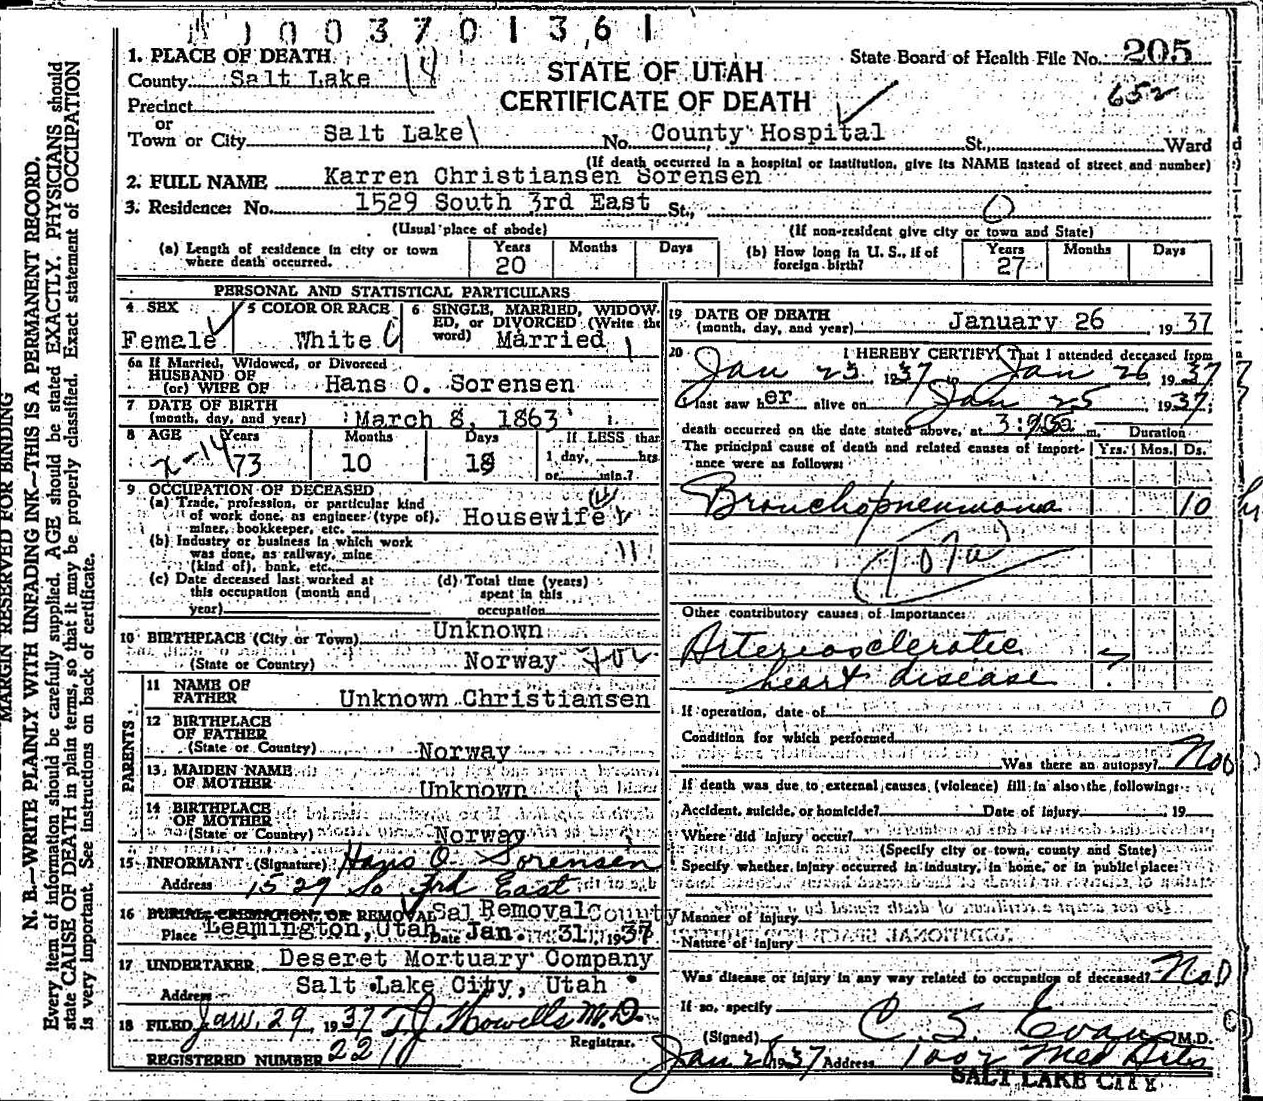 0 0 3 7 0 1 3 6 1
1. PLACE OF DEATH
County Salt Lake 14
Precinct
or
Town or City Salt Lake No. County Hospital St., Ward
STATE OF UTAH
CERTIFICATE OF DEATH
State Board of Health File No. 205
652
(If death occurred in a hospital or institution, give its NAME instead of street and number)
2. FULL NAME Karren Christiansen Sorensen
3. Residence: No. 1529 South 3rd East St., 0
(Usual place of abode) (If non-resident give city or town and State)
(a) Length of residence in city or town where death occurred. Years 20 Months Days
(b) How long in U. S., if of foreign birth? Years 27 Months Days
PERSONAL AND STATISTICAL PARTICULARS
4 SEX Female
5 COLOR OR RACE White
6 SINGLE, MARRIED, WIDOWED, or DIVORCED (Write the word) Married
6a If Married, Widowed, or Divorced
HUSBAND OF
(or) WIFE OF Hans O. Sorensen
7 DATE OF BIRTH
(month, day, and year) March 8, 1863
8 AGE Years 73 Months 10 Days 18
If LESS than
1 day, hrs.
or min.?
2-14
9 OCCUPATION OF DECEASED
(a) Trade, profession, or particular kind
of work done, as engineer (type of), Housewife
miner, bookkeeper, etc.
(b) Industry or business in which work
was done, as railway, mine
(kind of), bank, etc.
11
(c) Date deceased last worked at
this occupation (month and
year)
(d) Total time (years)
spent in this
occupation
10 BIRTHPLACE (City or Town) Unknown
(State or Country) Norway
PARENTS
11 NAME OF
FATHER Unknown Christiansen
12 BIRTHPLACE
OF FATHER
(State or Country) Norway
13. MAIDEN NAME
OF MOTHER Unknown
14 BIRTHPLACE
OF MOTHER
(State or Country) Norway
15 INFORMANT (Signature) Hans O. Sorensen
Address 1529 So 3rd East
16 BURIAL, CREMATION, OR REMOVAL Sal Removal County
Place Leamington, Utah Date Jan. 31, 1937
17 UNDERTAKER Deseret Mortuary Company
Address Salt Lake City, Utah
18 FILED Jan. 29, 1937 T J Howells M.D.
Registrar.
REGISTERED NUMBER 221
19 DATE OF DEATH
(month, day, and year) January 26 1937
20 I HEREBY CERTIFY, That I attended deceased from
Jan 23 1937 to Jan 26 1937
I last saw her alive on Jan 25 1937;
death occurred on the date stated above, at m. Duration
The principal cause of death and related causes of importance were as follows: Yrs. Mos. Ds.
Bronchopneumonia 10
Other contributory causes of importance:
Arteriosclerotic ?
heart disease
If operation, date of 0
Condition for which performed
Was there an autopsy? No 0
If death was due to external causes (violence) fill in also the following:
Accident, suicide, or homicide? Date of injury 19
Where did injury occur?
(Specify city or town, county and State)
Specify whether injury occurred in industry, in home, or in public place:
Manner of injury
Nature of injury
Was disease or injury in any way related to occupation of deceased? No 0
If so, specify
(Signed) C. S. Evans M.D.
Jan 28 1937 Address 1002 Med Arts
SALT LAKE CITY
MARGIN RESERVED FOR BINDING
N. B.—WRITE PLAINLY WITH UNFADING INK—THIS IS A PERMANENT RECORD.
Every item of information should be carefully supplied. AGE should be stated EXACTLY. PHYSICIANS should
state CAUSE OF DEATH in plain terms, so that it may be properly classified. Exact statement of OCCUPATION
is very important. See instructions on back of certificate.